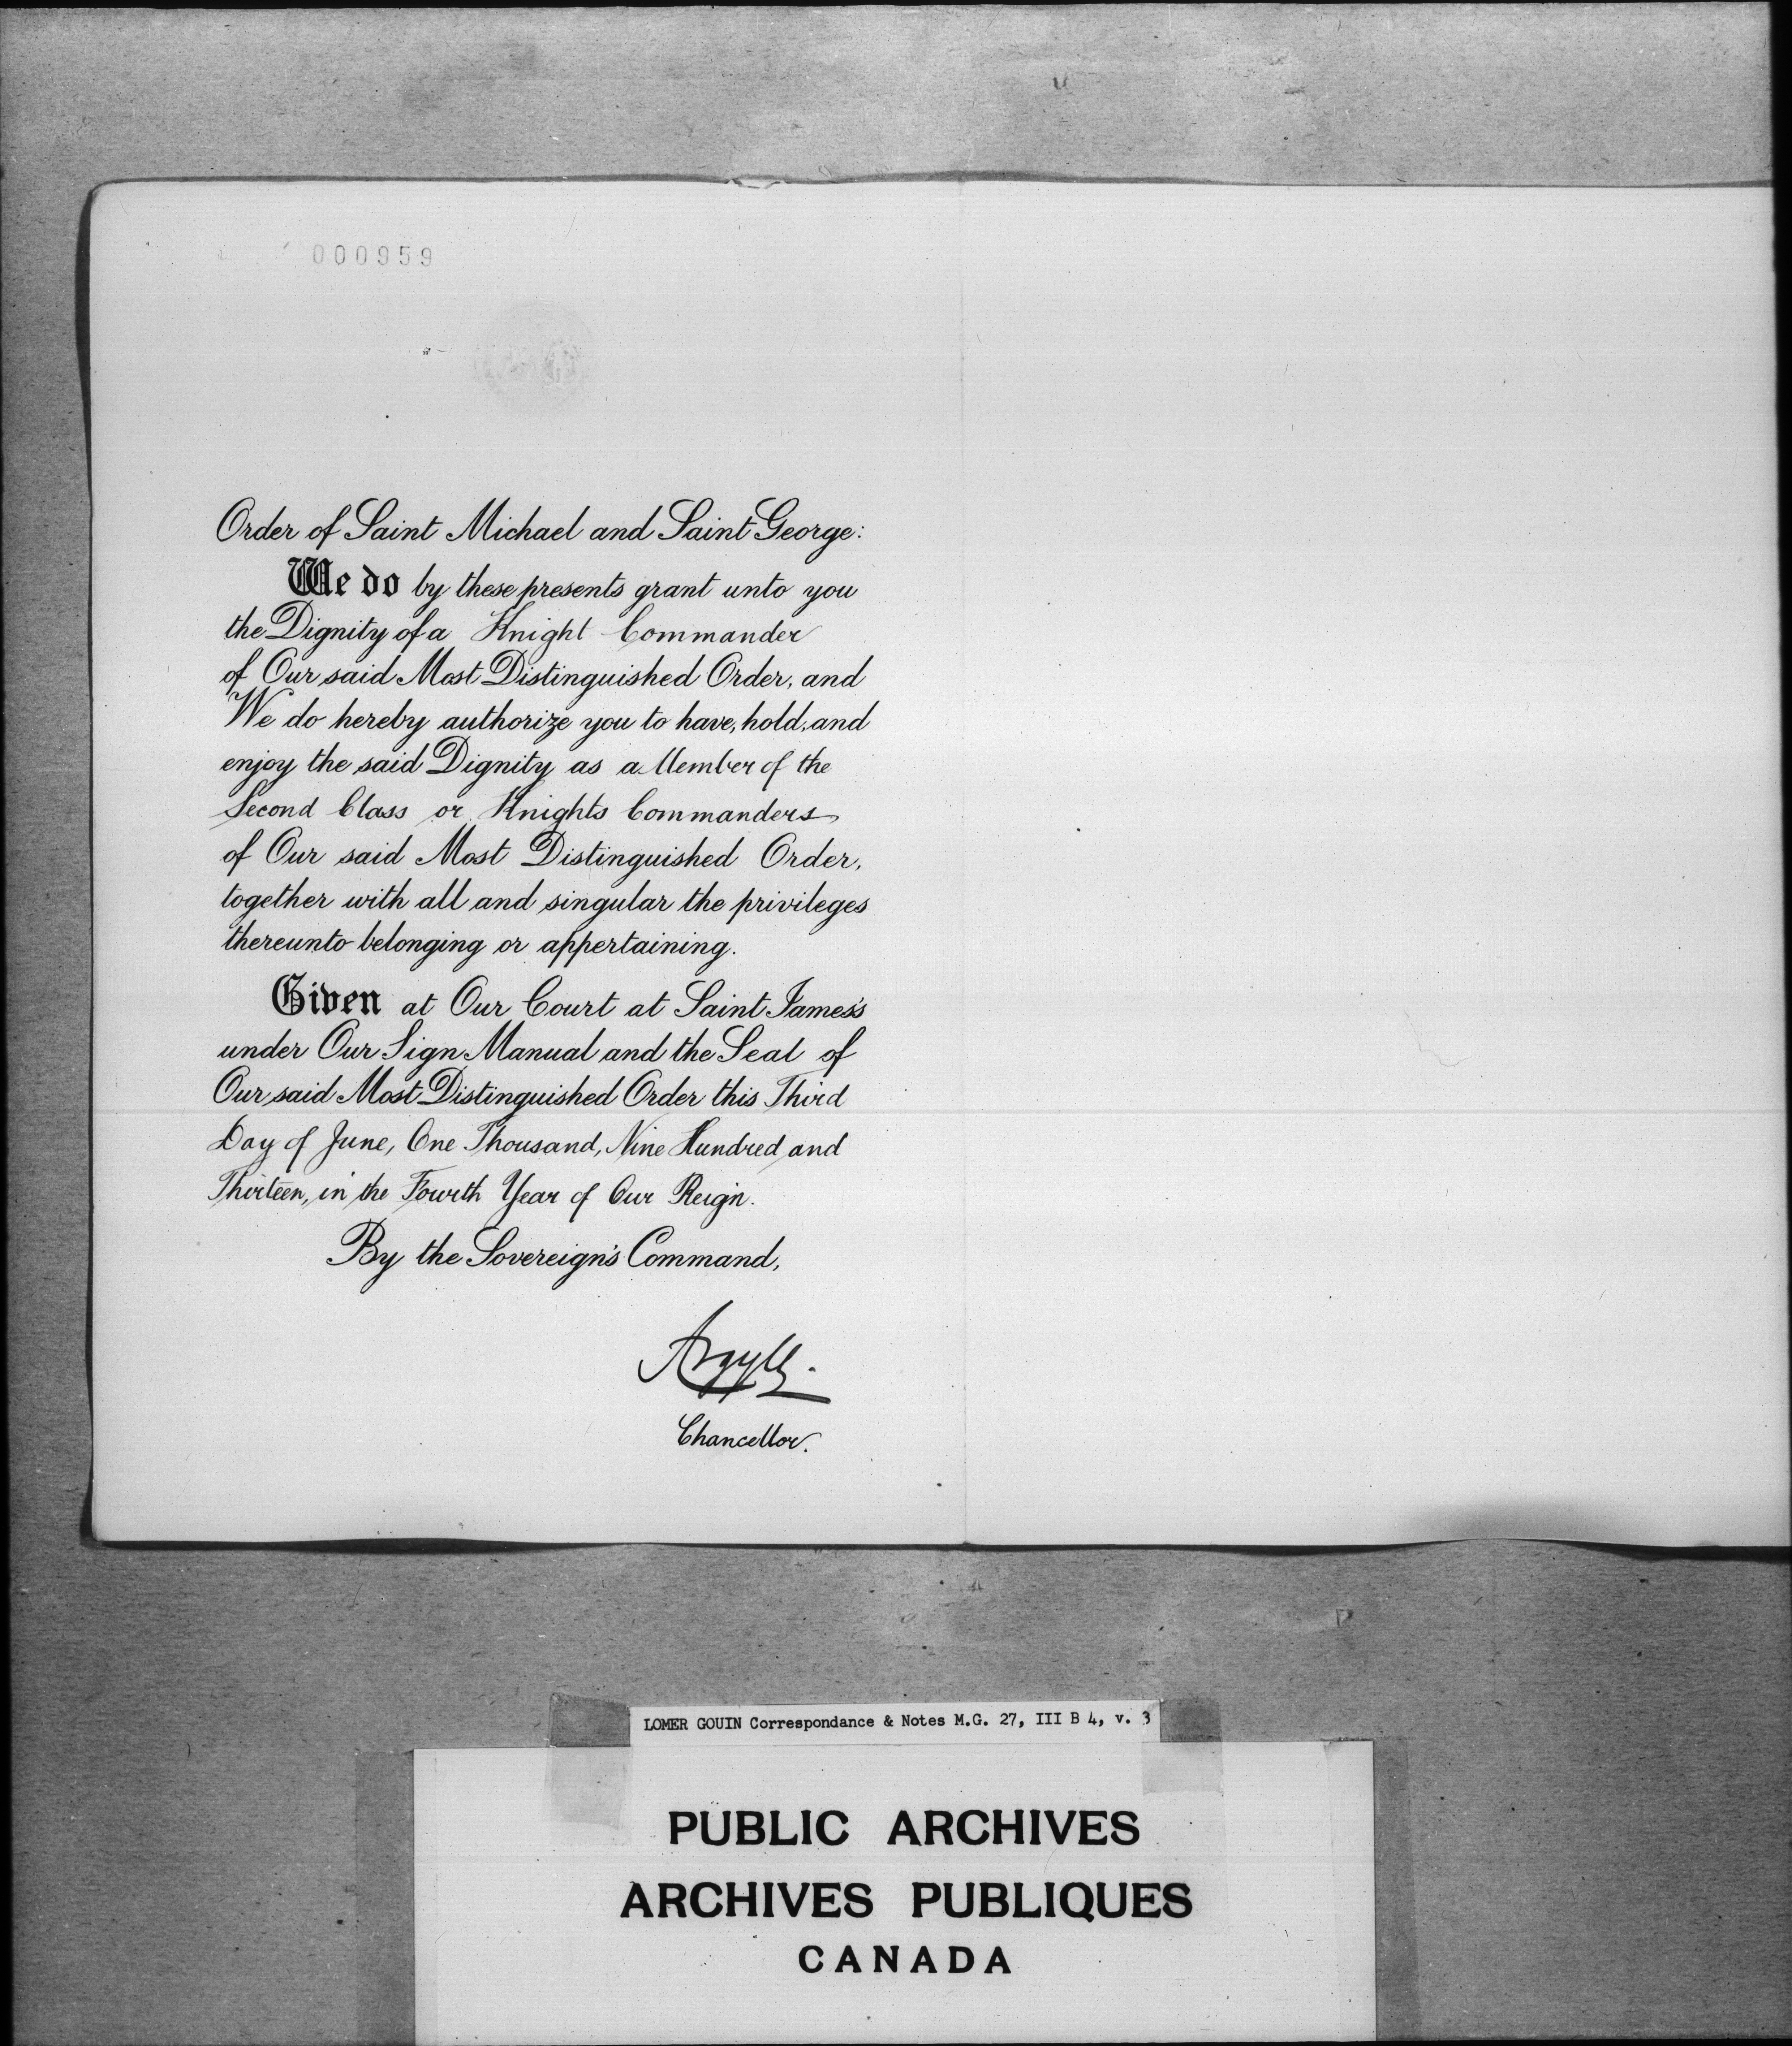 000959
Order of Saint Michael and Saint George:
We do by these presents grant unto you
the Dignity of a Knight Commander
of Our said Most Distinguished Order, and
We do hereby authorize you to have, hold, and
enjoy the said Dignity as a Member of the
Second Class or Knights Commanders
of Our said Most Distinguished Order,
together with all and singular the privileges
thereunto belonging or appertaining.
Given at Our Court at Saint James's
under Our Sign Manual and the Seal of
Our said Most Distinguished Order this Third
Day of June, One Thousand, Nine Hundred and
Thirteen, in the Fourth Year of Our Reign.
By the Sovereign's Command,
Argyll.
Chancellor.
LOMER GOUIN Correspondance & Notes M.G. 27, III B 4, v. 3
PUBLIC ARCHIVES
ARCHIVES PUBLIQUES
CANADA